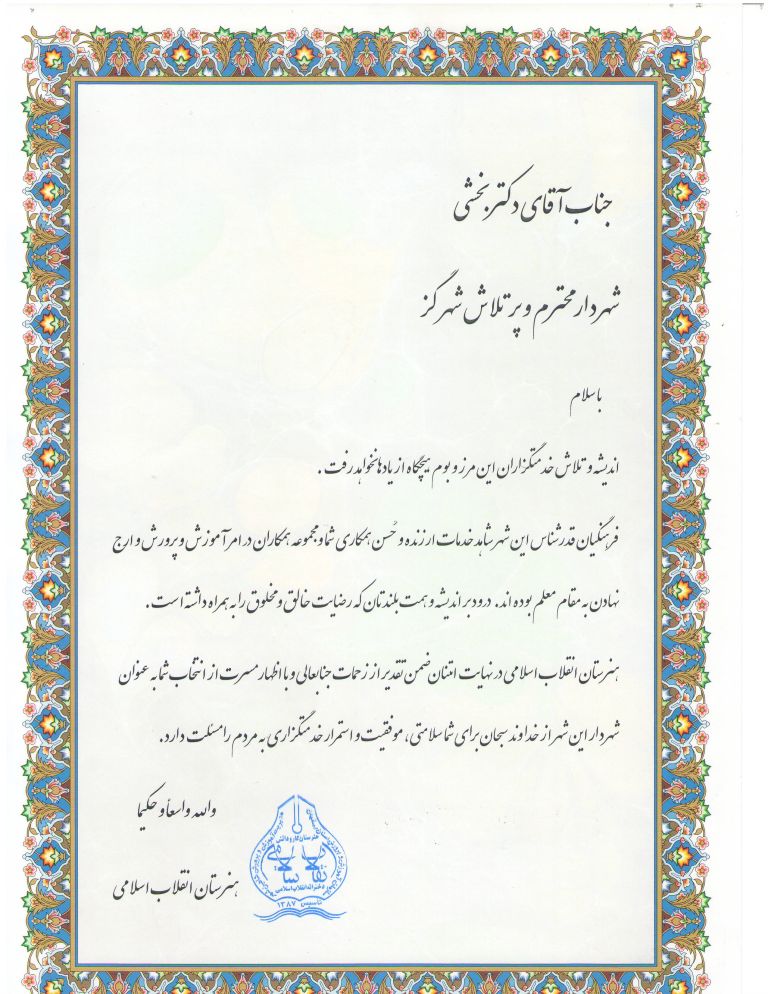 جناب آقای دکتر بخشی
شهردار محترم و پر تلاش شهر گز
با سلام
اندیشه و تلاش خدمتگزاران این مرز و بوم هیچگاه از یادها نخواهد رفت .
فرهنگیان قدرشناس این شهر شاهد خدمات ارزنده و حُسن همکاری شما و مجموعه همکاران در امر آموزش و پرورش و ارج
نهادن به مقام معلم بوده اند. درود بر اندیشه و همت بلندتان که رضایت خالق و مخلوق را به همراه داشته است .
هنرستان انقلاب اسلامی در نهایت امتنان ضمن تقدیر از زحمات جنابعالی و با اظهار مسرت از انتخاب شما به عنوان
شهردار این شهر از خداوند سبحان برای شما سلامتی، موفقیت و استمرار خدمتگزاری به مردم را مسئلت دارد.
والله واسعاً و حکیما
هنرستان انقلاب اسلامی
هنرستان کار و دانش
انقلاب اسلامی
دخترانه انقلاب اسلامی
تاسیس ۱۳۸۷